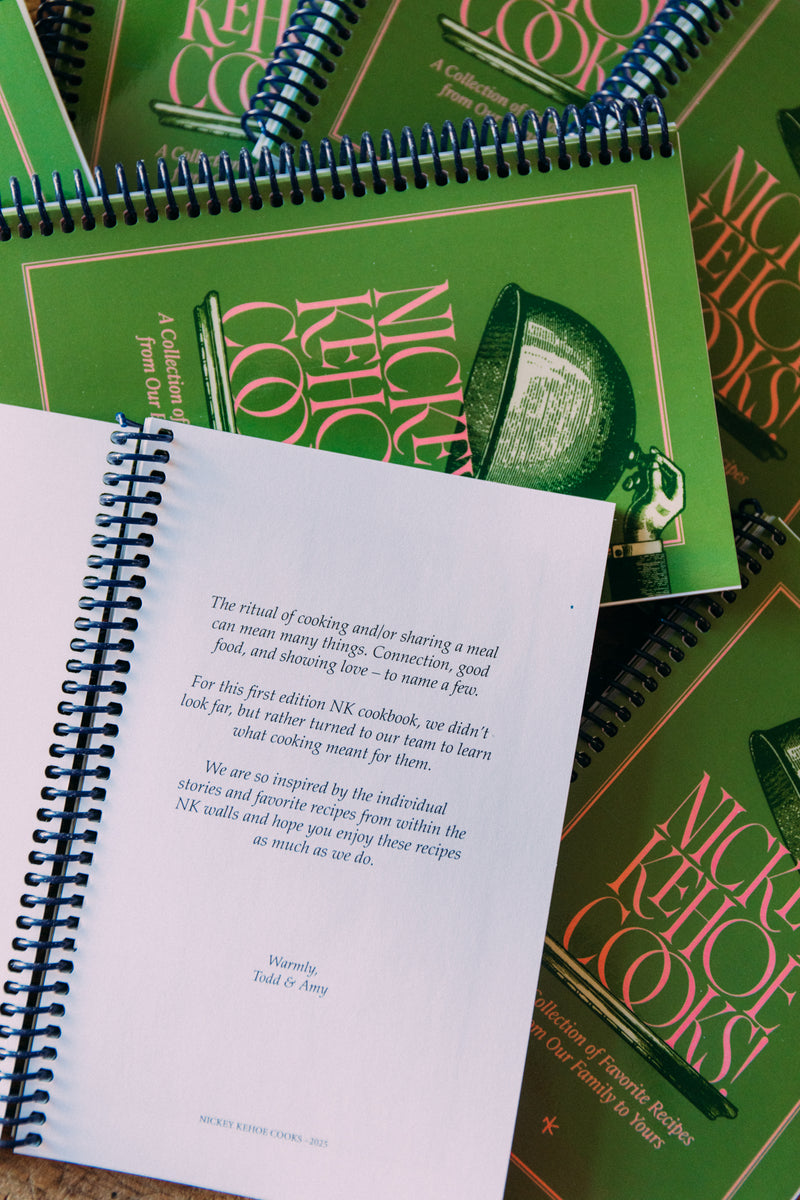 KEH
CO
A Collection of
from Our
CO
A Co
NICKEY
KEHO
COO
A Collection of
from Our F
NICK
KEHOE
OOKS!
ipes
The ritual of cooking and/or sharing a meal
can mean many things. Connection, good
food, and showing love – to name a few.
For this first edition NK cookbook, we didn't
look far, but rather turned to our team to learn
what cooking meant for them.
We are so inspired by the individual
stories and favorite recipes from within the
NK walls and hope you enjoy these recipes
as much as we do.
Warmly,
Todd & Amy
NICKEY KEHOE COOKS - 2025
NICKE
KEHOE
COOKS!
Collection of Favorite Recipes
from Our Family to Yours